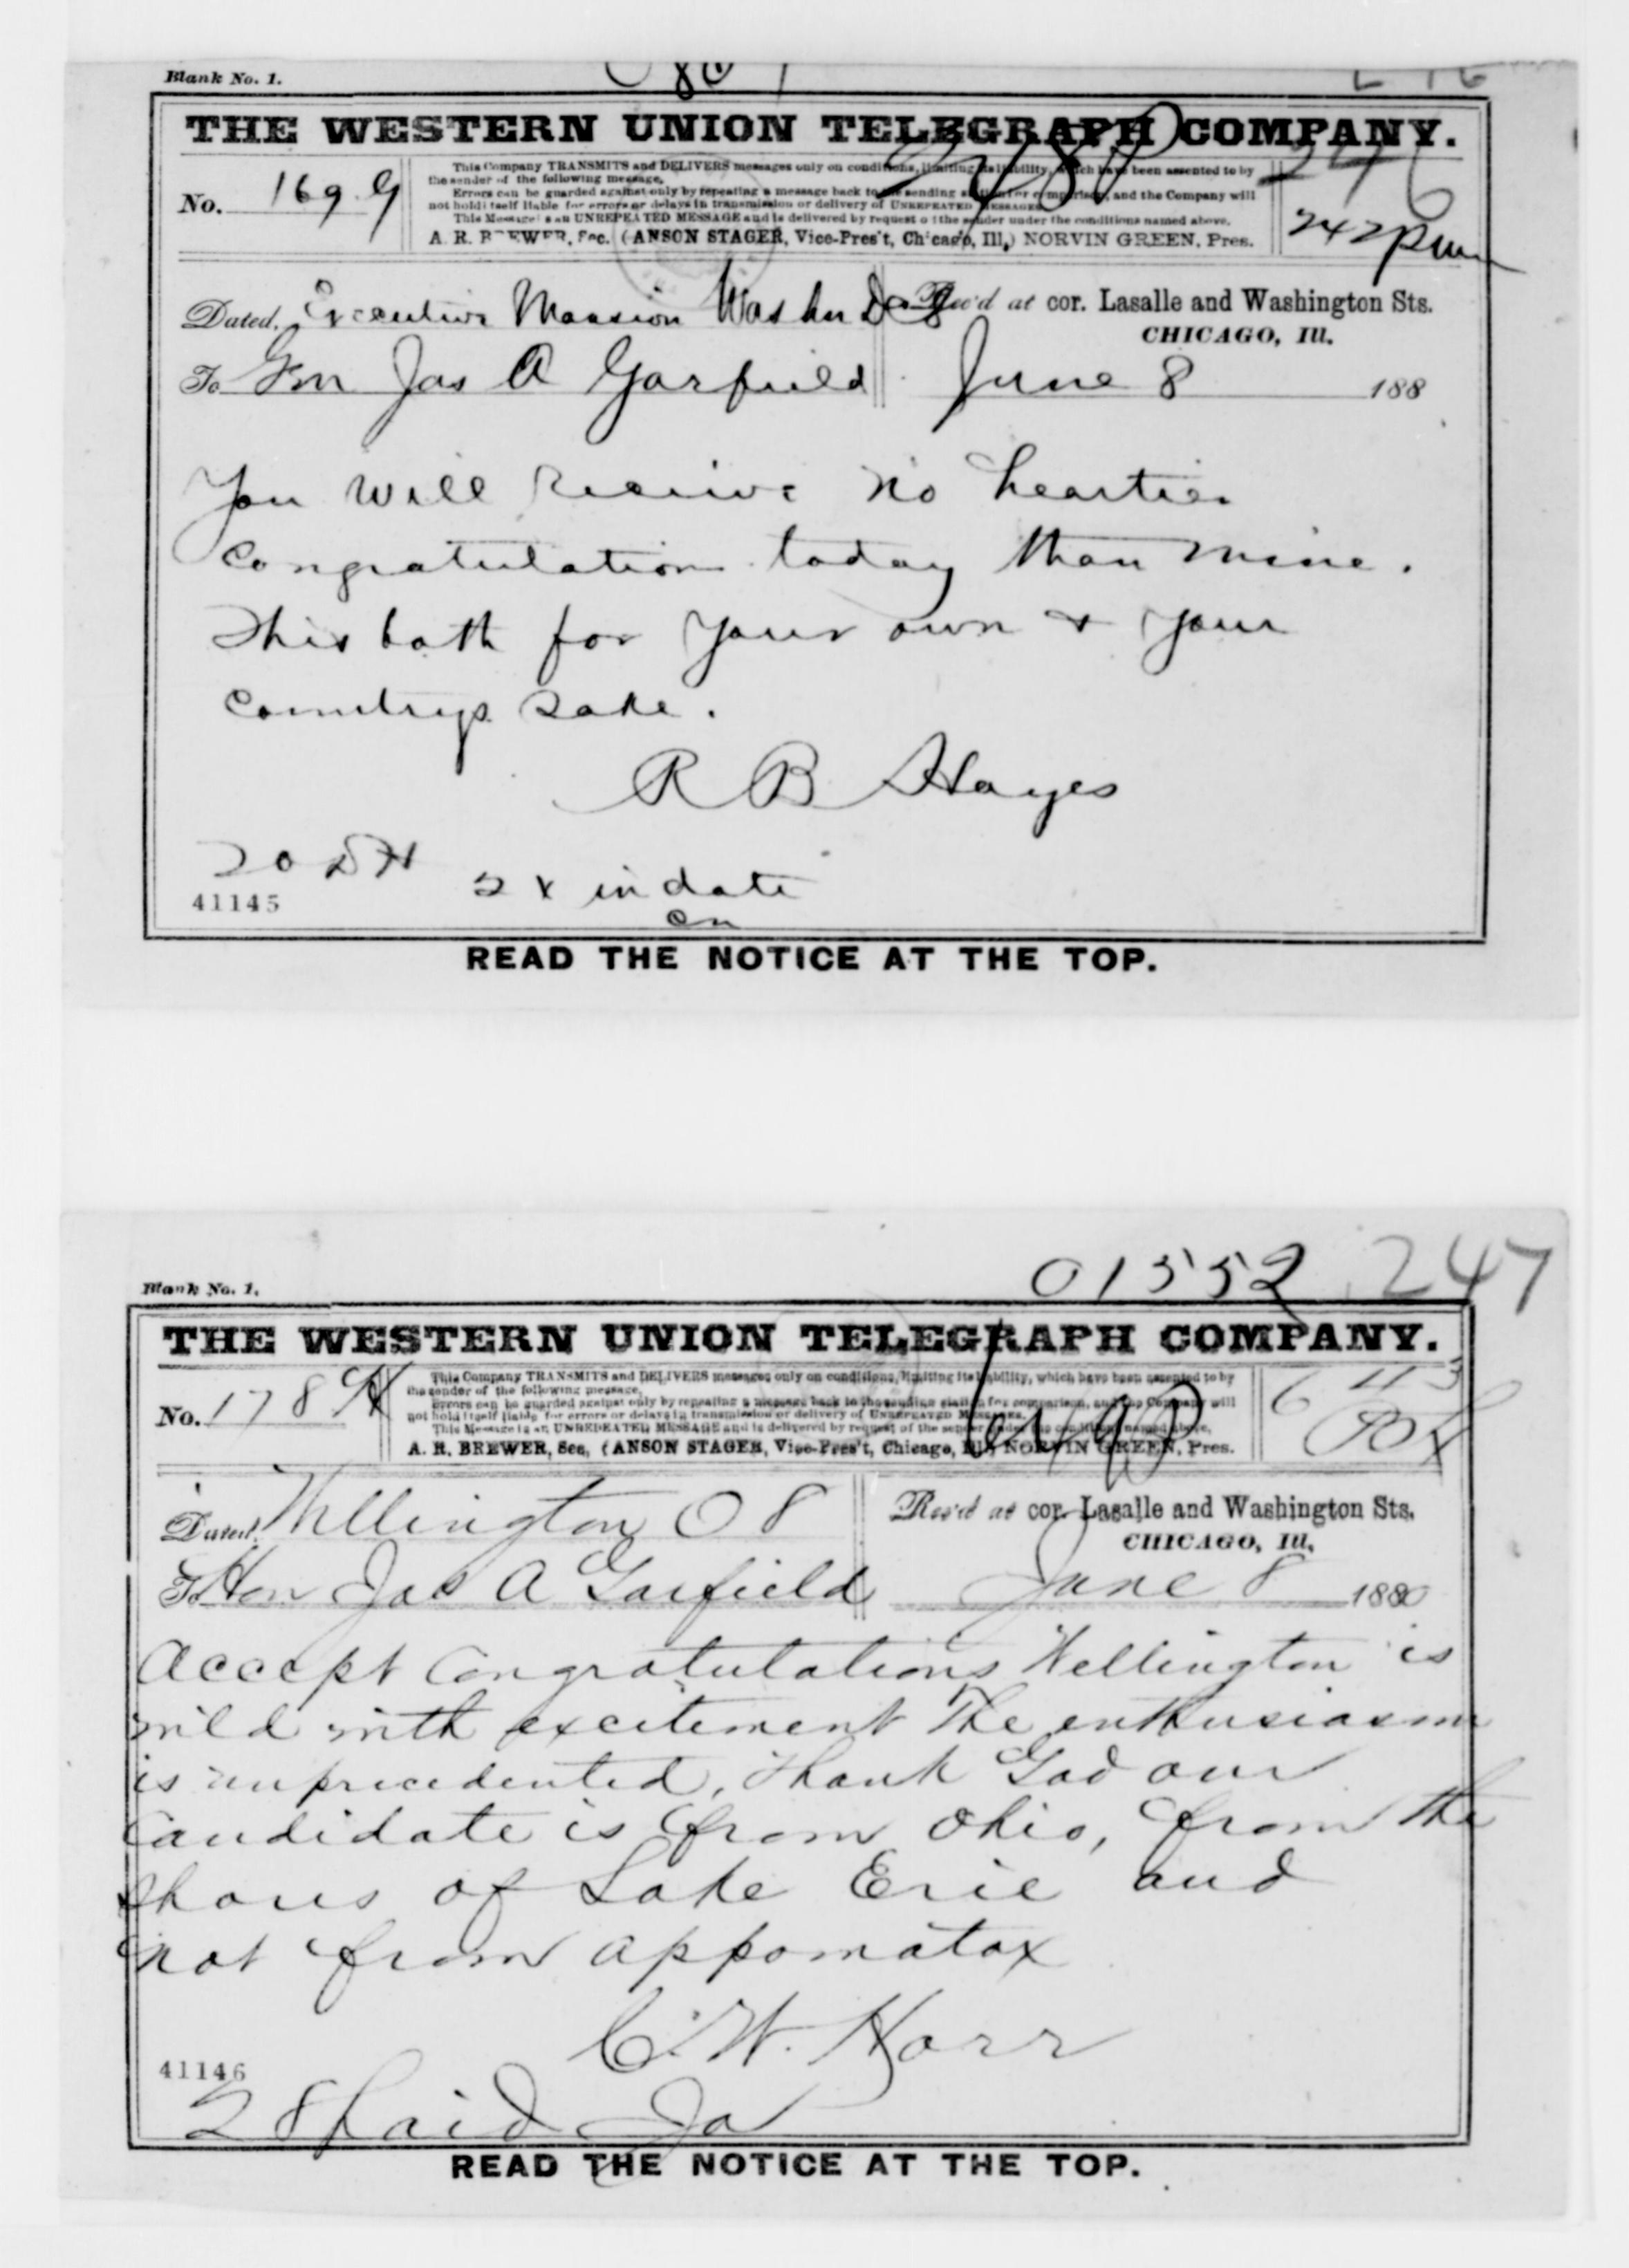 Blank No. 1.
THE WESTERN UNION TELEGRAPH COMPANY.
246
No. 169. G
This Company TRANSMITS and DELIVERS messages only on conditions, limiting its liability, which have been assented to by
the sender of the following message.
Errors can be guarded against only by repeating a message back to the sending station for comparison, and the Company will
not hold itself liable for errors or delays in transmission or delivery of UNREPEATED MESSAGES.
This Message is an UNREPEATED MESSAGE and is delivered by request of the sender under the conditions named above.
A. R. BREWER, Sec. (ANSON STAGER, Vice-Pres't, Chicago, Ill,) NORVIN GREEN, Pres.
242 pm
Dated, Executive Mansion Washn DC 8
Rec'd at cor. Lasalle and Washington Sts.
CHICAGO, Ill.
To Gen Jas A Garfield
June 8 188
You will receive no heartier
congratulation today than mine.
This both for your own & your
countrys sake.
R B Hayes
20 DH
2 x in date
41145
READ THE NOTICE AT THE TOP.
01552 247
Blank No. 1.
THE WESTERN UNION TELEGRAPH COMPANY.
No. 178 H
This Company TRANSMITS and DELIVERS messages only on conditions, limiting its liability, which have been assented to by
the sender of the following message.
Errors can be guarded against only by repeating a message back to the sending station for comparison, and the Company will
not hold itself liable for errors or delays in transmission or delivery of UNREPEATED MESSAGES.
This Message is an UNREPEATED MESSAGE and is delivered by request of the sender under the conditions named above.
A. R. BREWER, Sec, (ANSON STAGER, Vice-Pres't, Chicago, Ill,) NORVIN GREEN, Pres.
Dated, Wellington O 8
Rec'd at cor. Lasalle and Washington Sts.
CHICAGO, Ill,
To Hon Jas A Garfield
June 8 1880
Accept Congratulations Wellington is
wild with excitement The enthusiasm
is unprecedented, thank God our
Candidate is from Ohio, from the
shores of Lake Erie and
not from appomatox
C. W. Horr
41146
28 Paid Ja
READ THE NOTICE AT THE TOP.